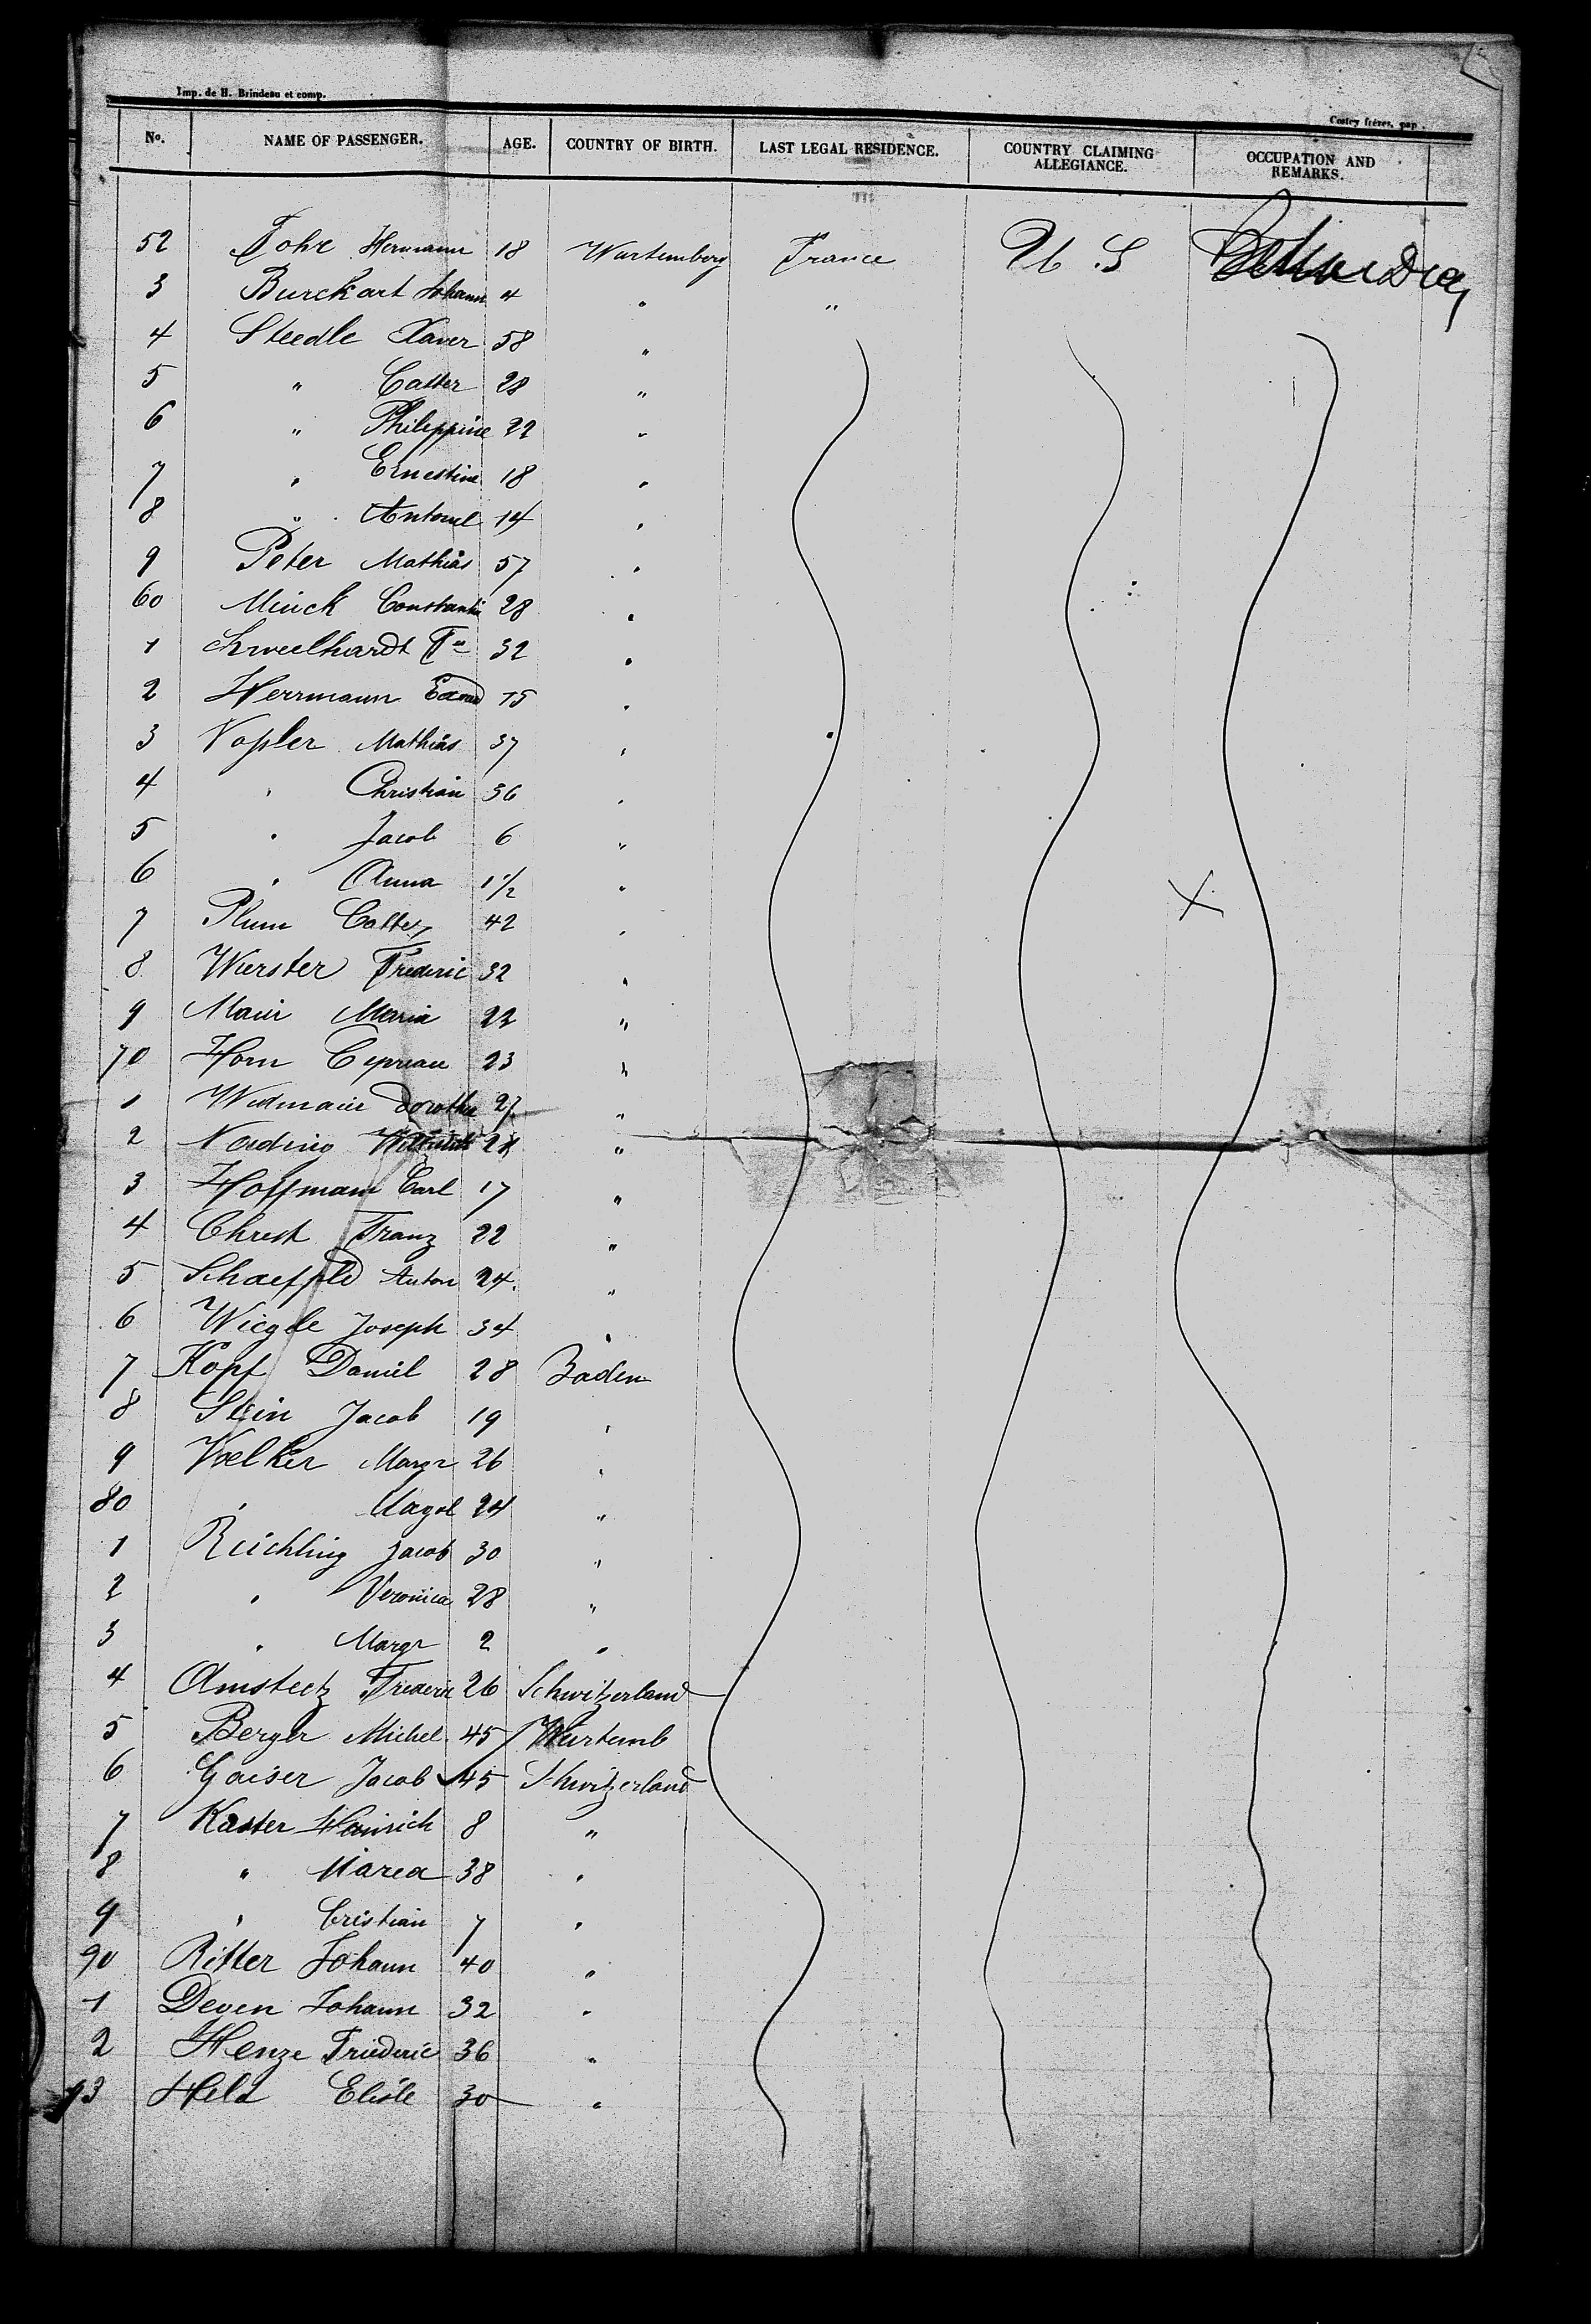 Imp. de H. Brindeau et comp.
No. NAME OF PASSENGER. AGE. COUNTRY OF BIRTH. LAST LEGAL RESIDENCE. COUNTRY CLAIMING ALLEGIANCE. OCCUPATION AND REMARKS.
52 Fohr Hermann 18 Wurtemberg France U S
3 Burckart Johann 4 " "
4 Steedle Xaver 58 "
5 " Cather 28 "
6 " Philippine 22 "
7 " Ernestine 18 "
8 " 14 "
9 Peter Mathias 57 "
60 Minck Constantin 28 "
1 32 "
2 Herrmann 15 "
3 Vopler Mathias 37 "
4 " Christian 36 "
5 " Jacob 6 "
6 " Anna 1 1/2 "
7 Plum 42 "
8 Wurster Frederic 32 "
9 Mair Maria 22 "
70 Horn Cyprian 23 "
1 Widmaier Dorothee 27 "
2 Nording "
3 Hoffmann Carl 17 "
4 Christ Franz 22 "
5 Schaeffold Anton 24. "
6 Wiegele Joseph 34 "
7 Kopf Daniel 28 Baden
8 Stein Jacob 19 "
9 Voelker Margr 26 "
80 " Magd 24 "
1 Reichling Jacob 30 "
2 " Veronica 28 "
3 " Margr 2 "
4 Amstutz Frederic 26 Schwitzerland
5 Berger Michel 45 Wurtemb
6 Gaiser Jacob 45 Schwitzerland
7 Kaster Heinrich 8 "
8 " Marea 38 "
9 " Cristian 7 "
90 Ritter Johann 40 "
1 Deven Johann 32 "
2 Henze Friederic 36 "
93 Held Elisle 30 "